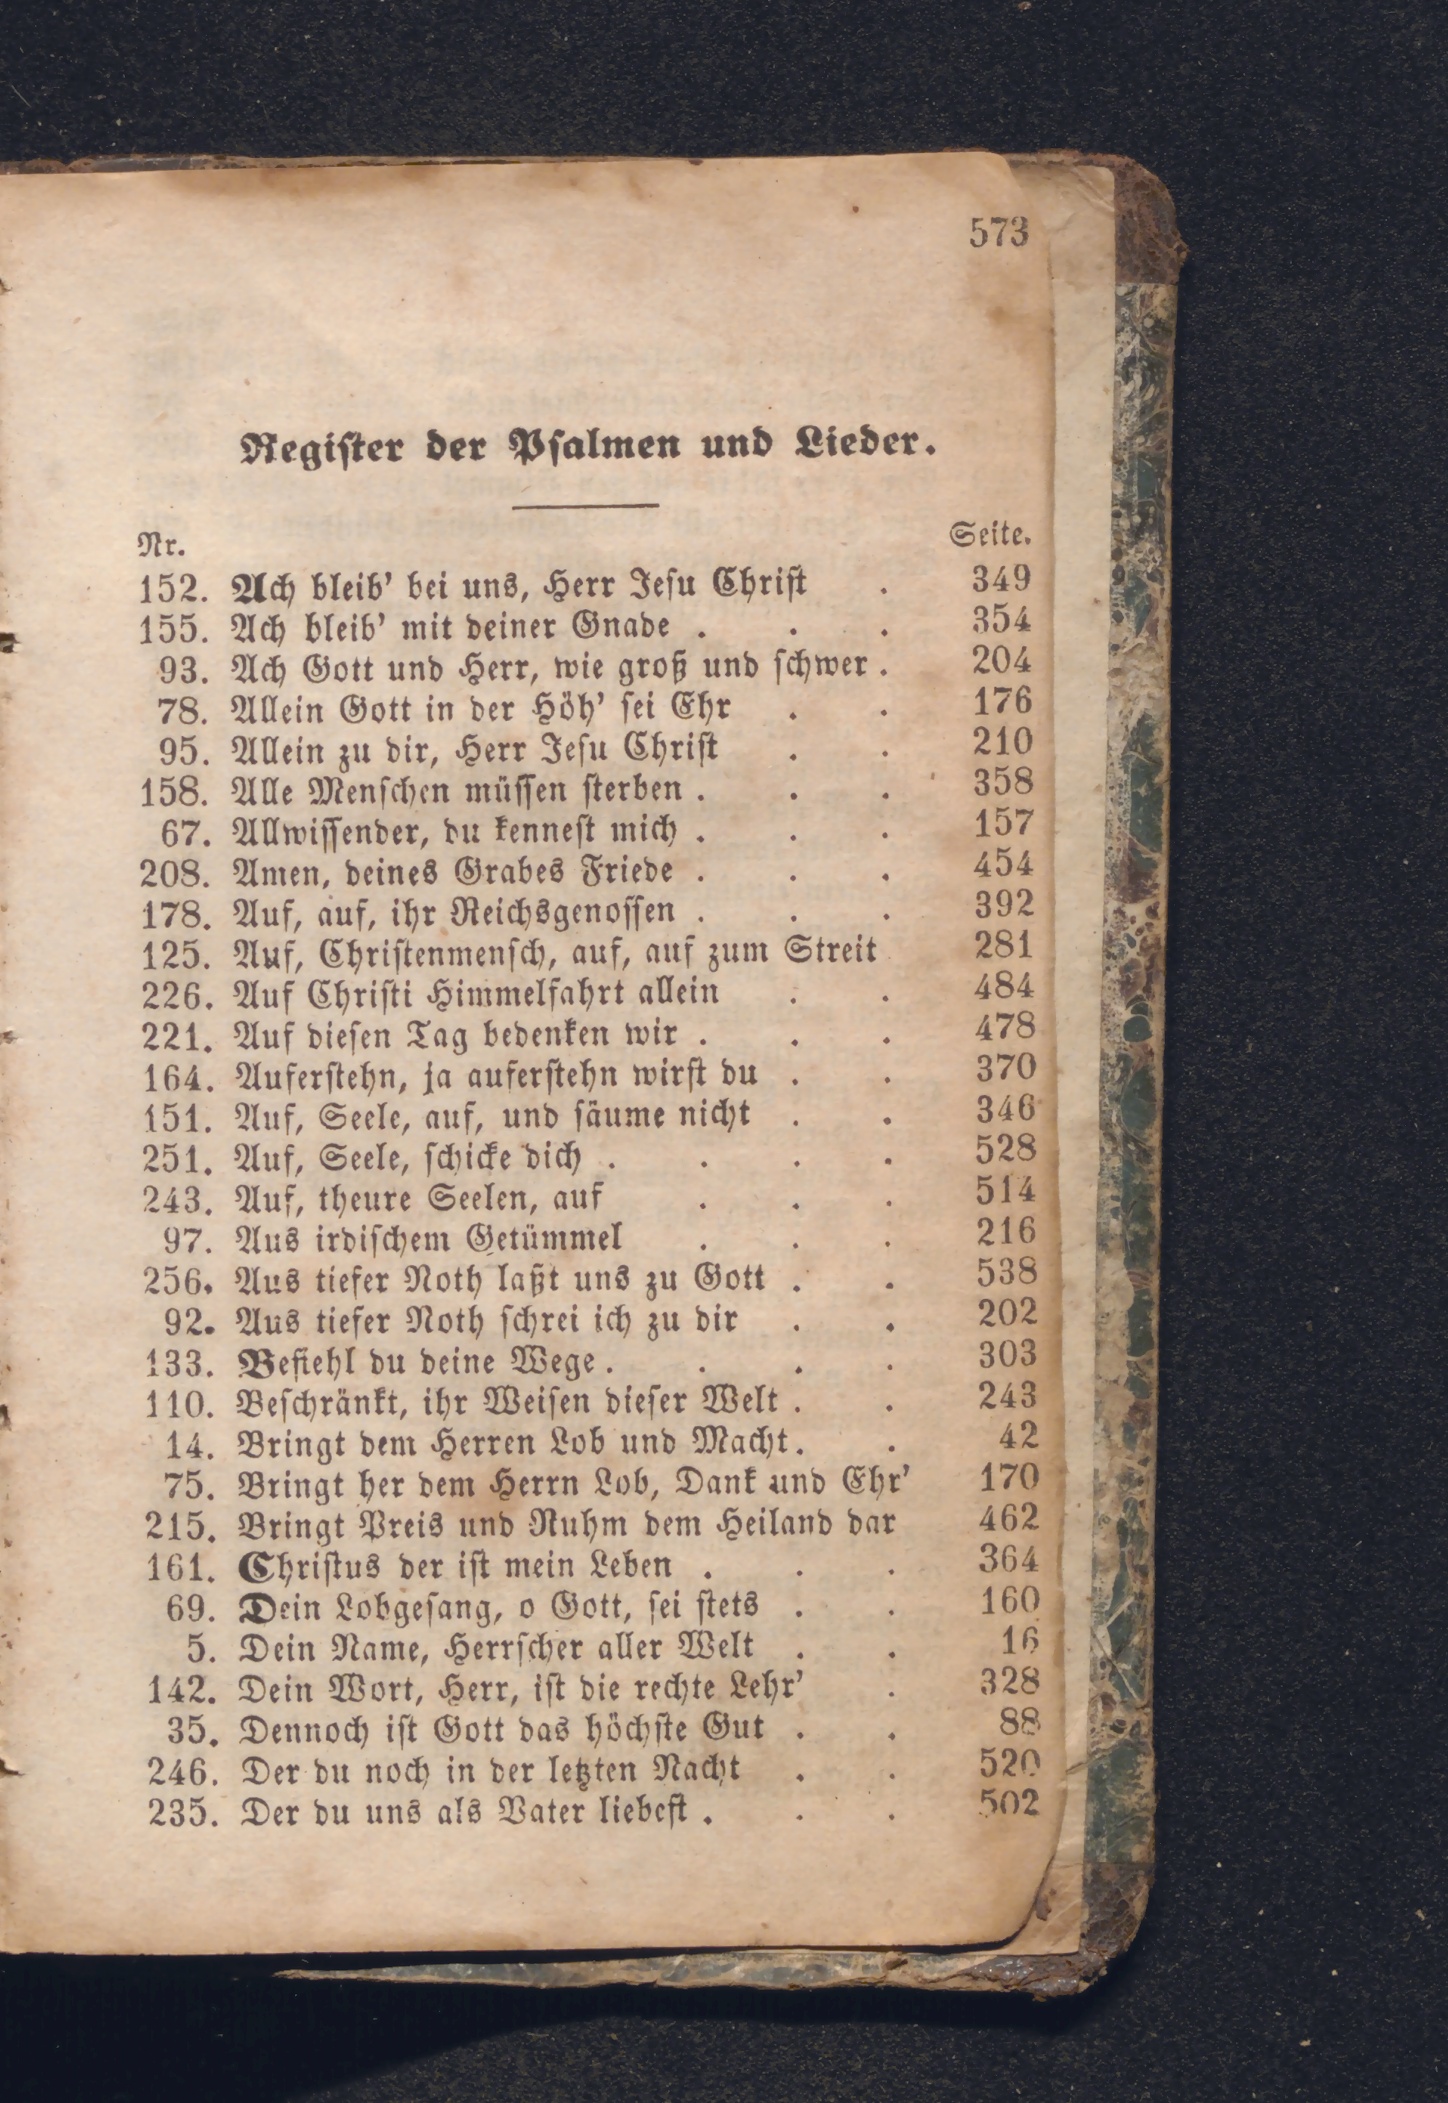 573
Register der Psalmen und Lieder.
Nr. Seite.
152. Ach bleib' bei uns, Herr Jesu Christ . 349
155. Ach bleib' mit deiner Gnade . . . 354
93. Ach Gott und Herr, wie groß und schwer . 204
78. Allein Gott in der Höh' sei Ehr . . 176
95. Allein zu dir, Herr Jesu Christ . . 210
158. Alle Menschen müssen sterben . . . 358
67. Allwissender, du kennest mich . . . 157
208. Amen, deines Grabes Friede . . . 454
178. Auf, auf, ihr Reichsgenossen . . . 392
125. Auf, Christenmensch, auf, auf zum Streit 281
226. Auf Christi Himmelfahrt allein . . 484
221. Auf diesen Tag bedenken wir . . . 478
164. Auferstehn, ja auferstehn wirst du . . 370
151. Auf, Seele, auf, und säume nicht . . 346
251. Auf, Seele, schicke dich . . . . 528
243. Auf, theure Seelen, auf . . . 514
97. Aus irdischem Getümmel . . . 216
256. Aus tiefer Noth laßt uns zu Gott . . 538
92. Aus tiefer Noth schrei ich zu dir . . 202
133. Befiehl du deine Wege . . . . 303
110. Beschränkt, ihr Weisen dieser Welt . . 243
14. Bringt dem Herren Lob und Macht. . 42
75. Bringt her dem Herrn Lob, Dank und Ehr' 170
215. Bringt Preis und Ruhm dem Heiland dar 462
161. Christus der ist mein Leben . . . 364
69. Dein Lobgesang, o Gott, sei stets . . 160
5. Dein Name, Herrscher aller Welt . . 16
142. Dein Wort, Herr, ist die rechte Lehr' . 328
35. Dennoch ist Gott das höchste Gut . . 88
246. Der du noch in der letzten Nacht . . 520
235. Der du uns als Vater liebest . . . 502